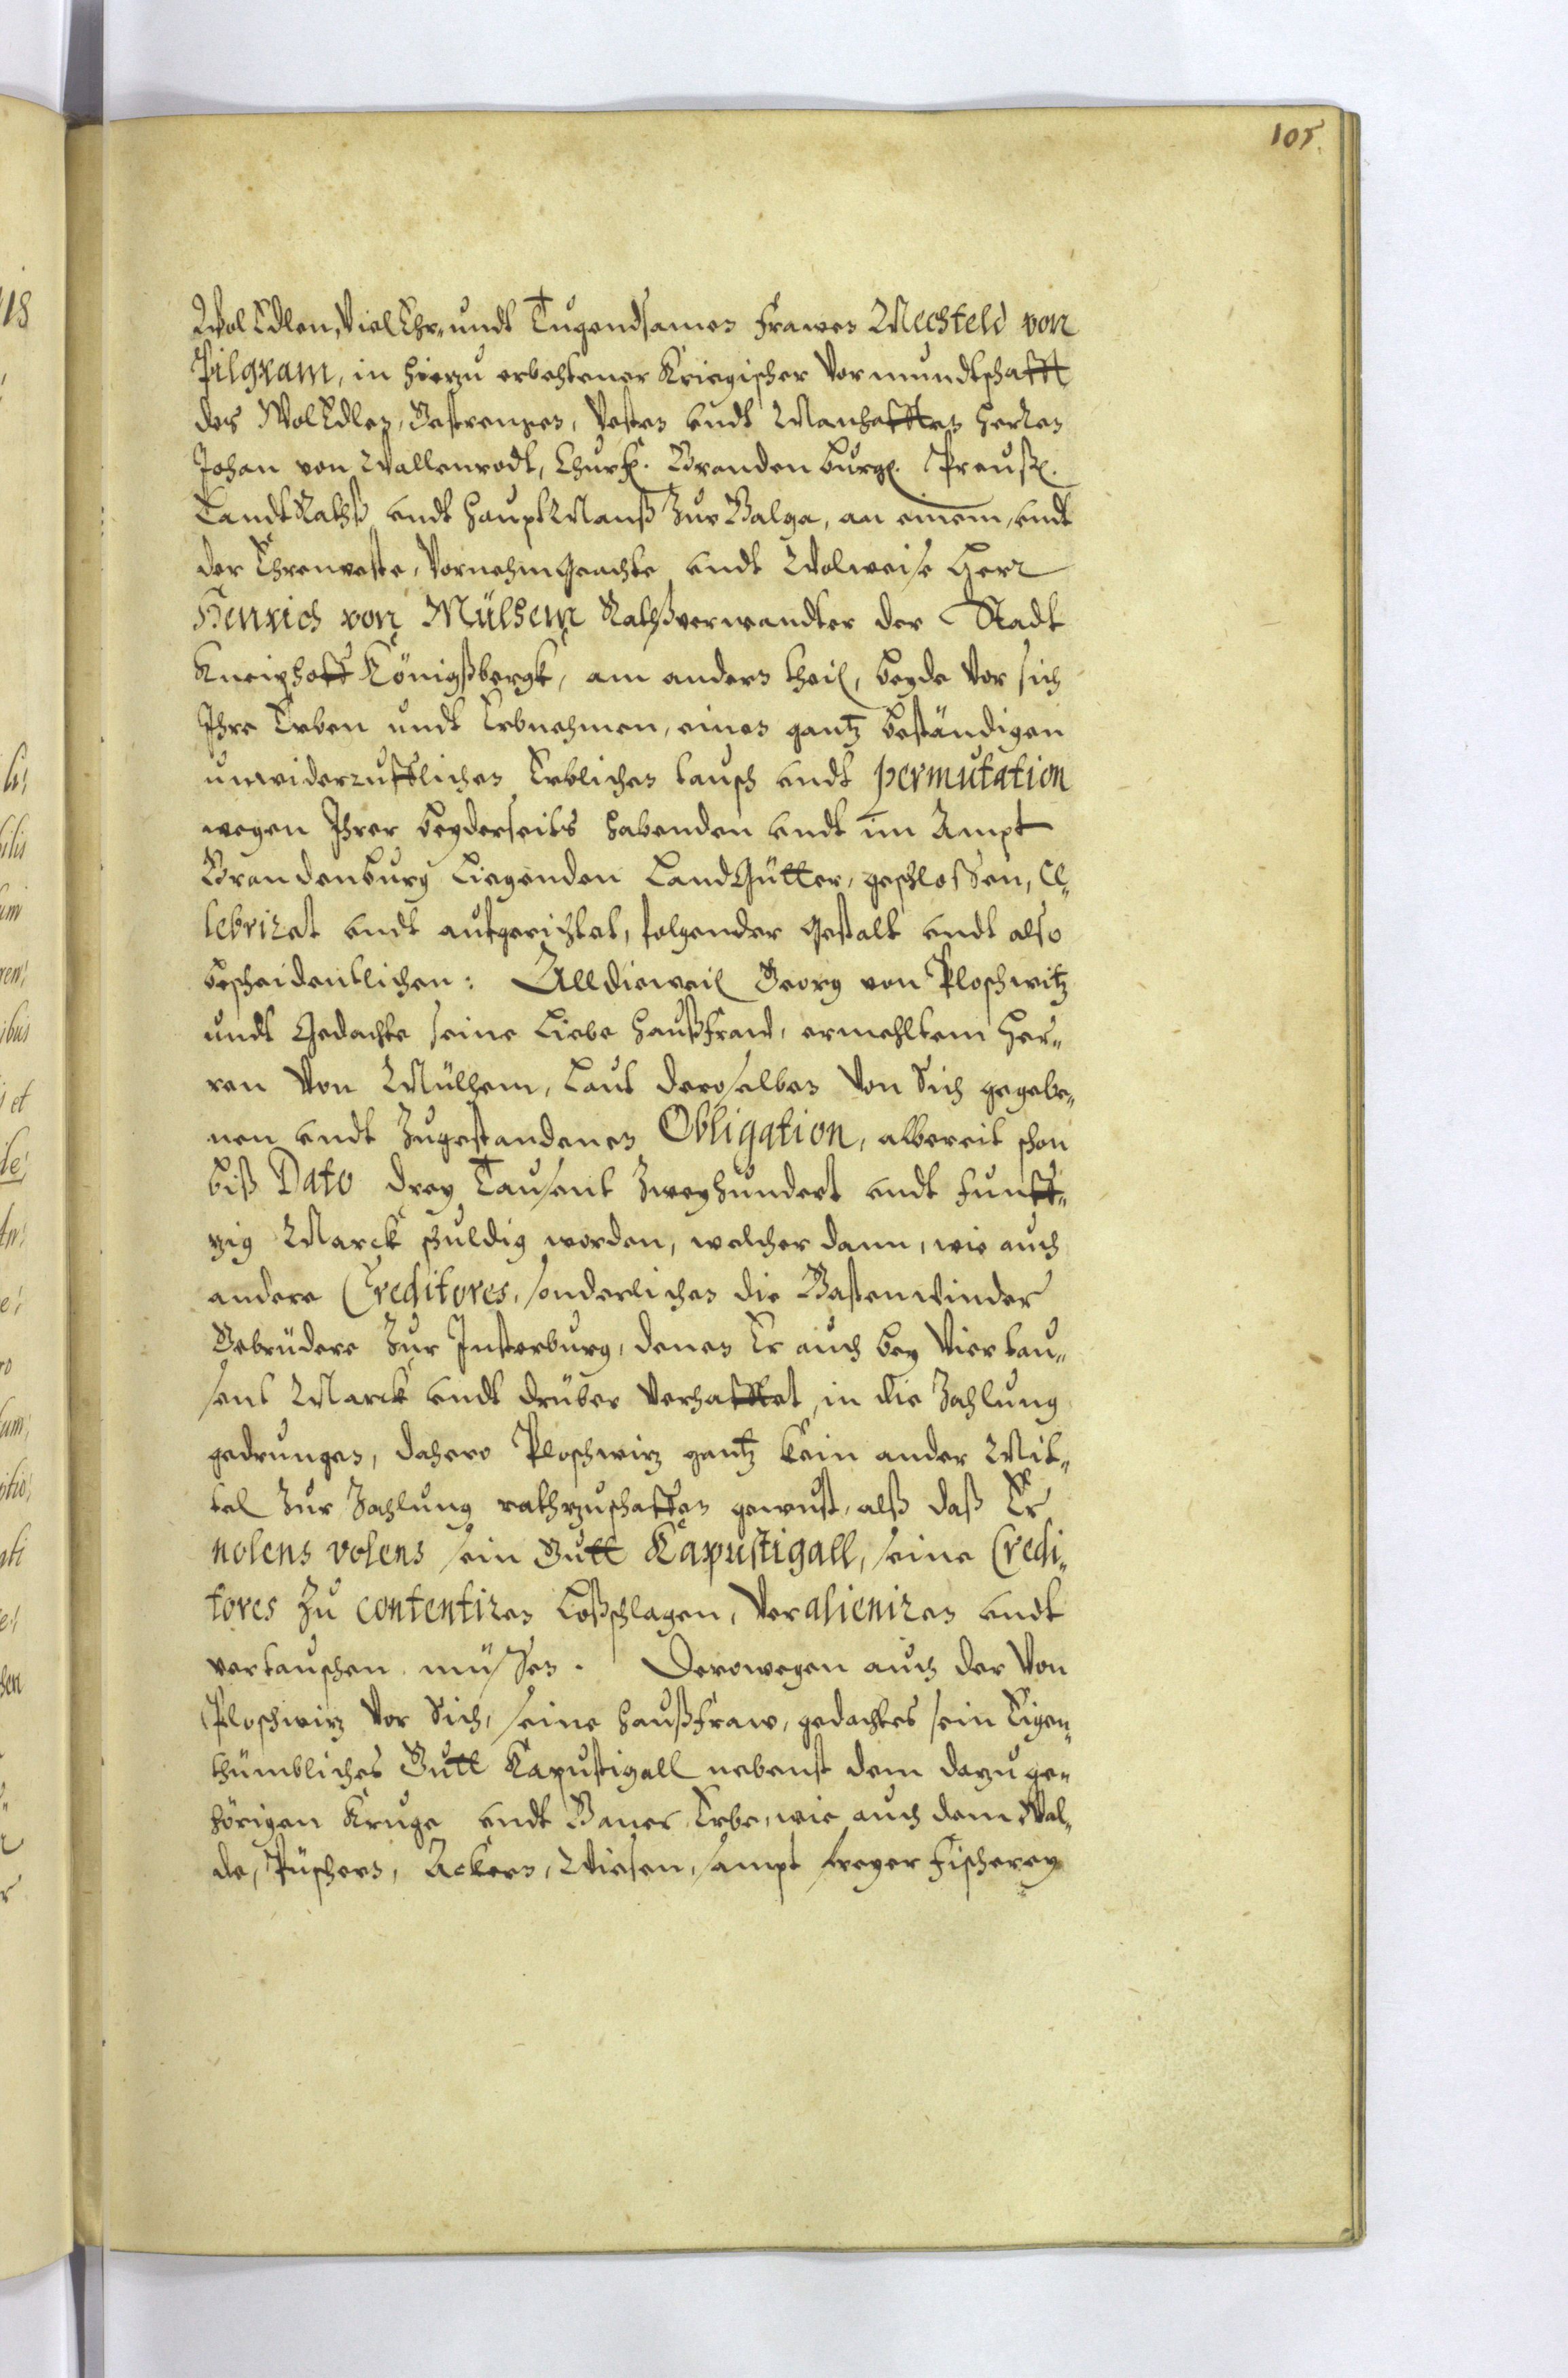 105.
Wol Edlen, Viel Ehr- undt Tugendsamen Frawen Mechteld von
Pilgram, in hierzu erbehtener Kriegischer Vormundtschafft
des WolEdlen, Gestrengen, Vesten undt Manhafften Herren
Johan von Wallenrodt, Churf. Brandenburg. Preuß.
LandtRahtß undt HauptManß Zur Balga, an einem, undt
der Ehrenveste, Vornehm Geachte undt Wolweise Herr
Henrich von Mülhem Rahtßverwandter der Stadt
Kneiphoff Königßbergk, am andern theil, beyde Vor sich
Ihre Erben undt Erbnehmen, einen gantz beständigen
unwiderrufflichen Erblichen tausch undt permutation
wegen Ihrer beyderseits habenden undt im Ampt
Brandenburg Liegenden LandGütter, geschlossen, Ce-
lebriret undt aufgerichtet, folgender Gestalt undt also
bescheidentlichen: Alldieweil Georg von Ploschwitz
undt Gedachte seine Liebe Haußfraw, ermehltem Her-
ren Von Mülhem, Laut deroselben Von Sich gegebe-
nen undt Zugestandenen Obligation, albereit schon
biß Dato drey Tausent Zweyhundert undt Funff-
zig Marck schuldig worden, welcher dann, wie auch
andere Creditores, sonderlichen die Bastenwinder
Gebrüdere Zur Insterburg, denen Er auch bey Viertau-
sent Marck undt drüber Verhafftet, in die Zahlung
gedrungen, dahero Ploschwiz gantz kein ander Mit-
tel Zur Zahlung rathzuschaffen gewust, alß daß Er
nolens volens sein Gutt Kapustigall, seine Credi-
tores Zu contentiren Loßschlagen, Veralieniren undt
vertauschen müssen. Derowegen auch der Von
Ploschwiz Vor Sich, seine Haußfraw, gedachtes sein Eigen-
thümbliches Gutt Kapustigall nebenst dem darzu ge-
hörigen Kruge undt Bauer Erbe, wie auch dem Wal-
de, Püschen, Äckern, Wiesen, sampt freyer Fischerey